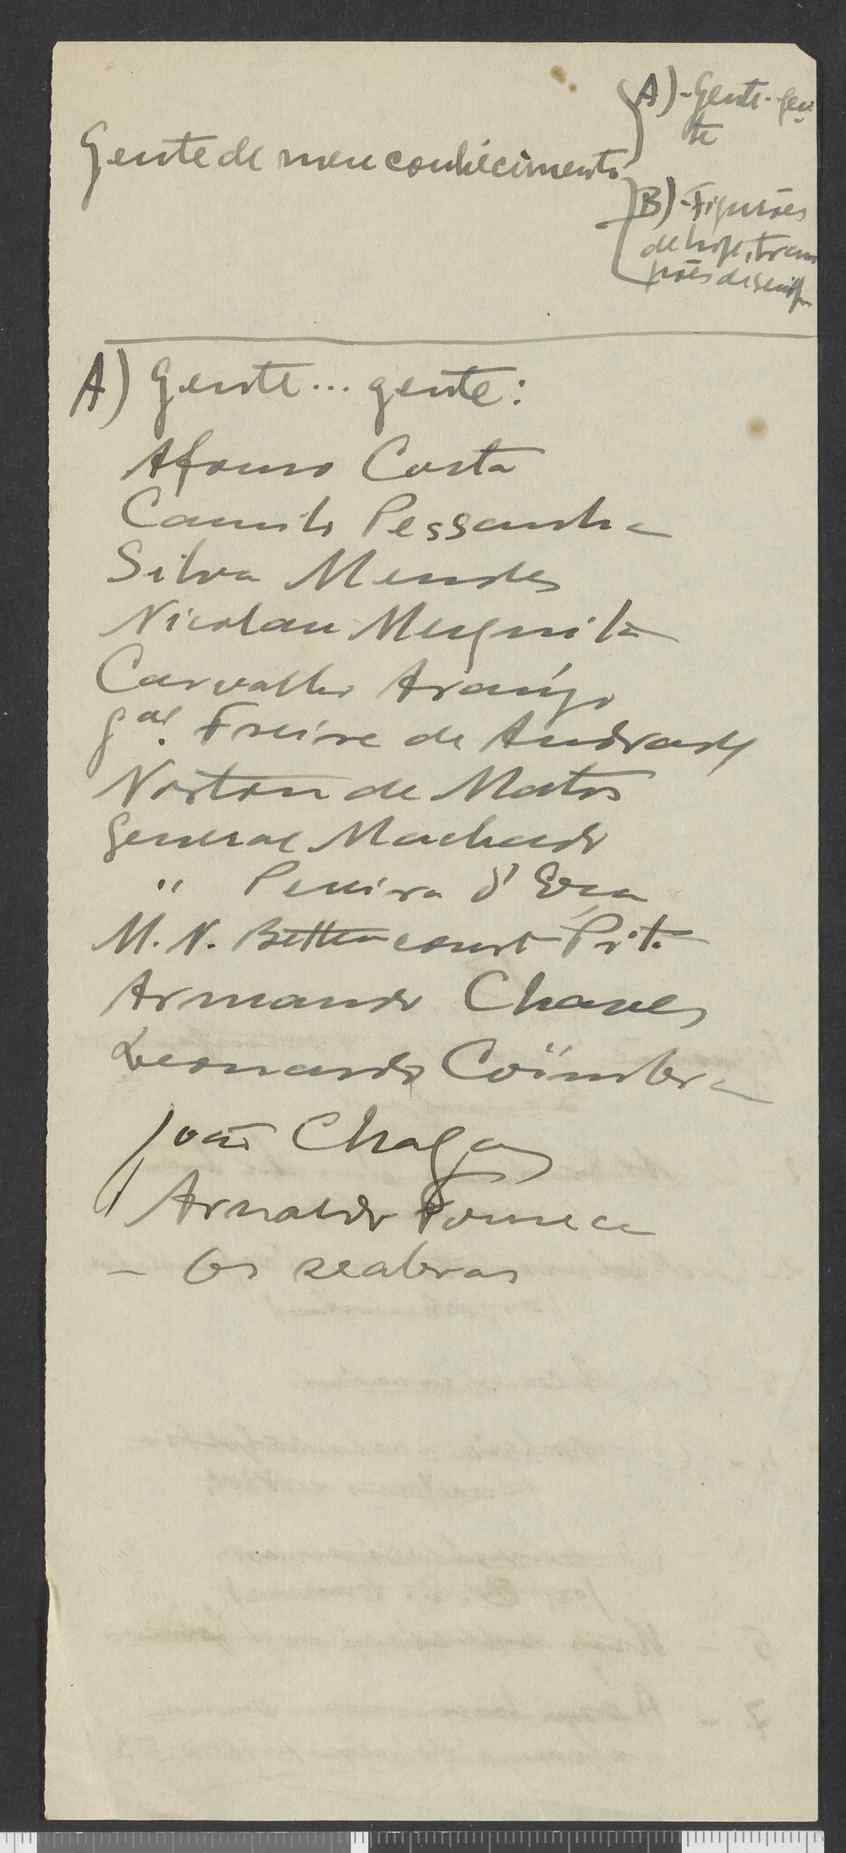 Gente de meu conhecimento
A)-Gente-gen
te
B)-Figurões
de hoje, tram
pões de sempre
A) Gente... gente:
Afonso Costa
Camilo Pessanha
Silva Mendes
Nicolau Mesquita
Carvalho Araújo
Gal. Freire de Andrade
Norton de Matos
General Machado
" Pereira d'Eça
M. N. Bettencourt Pita
Armando Chaves
Leonardo Coïmbra
João Chagas
Arnaldo Fonseca
- Os seabras